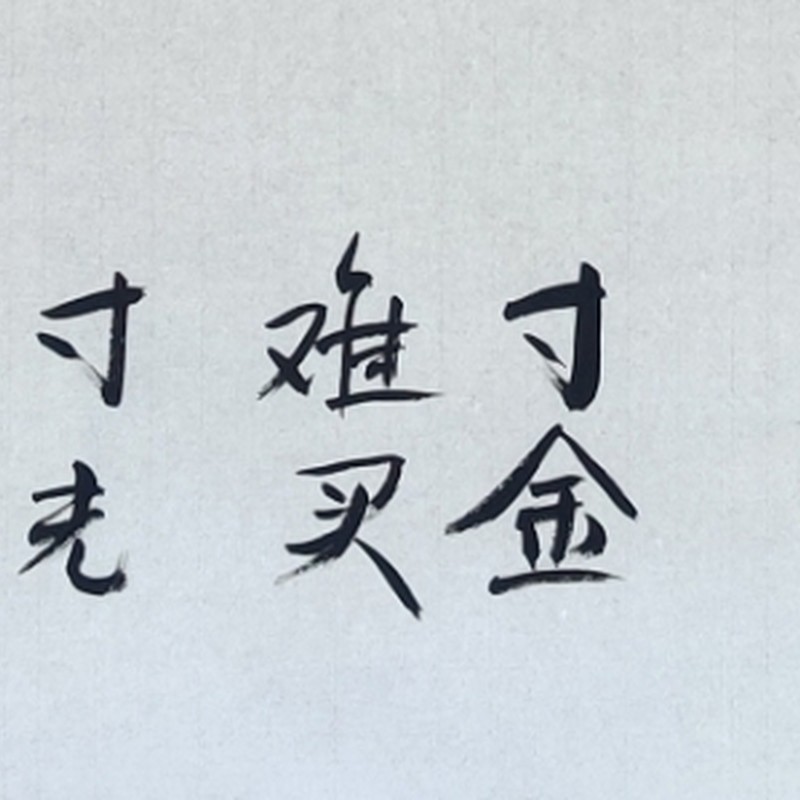 寸金
难买
寸光